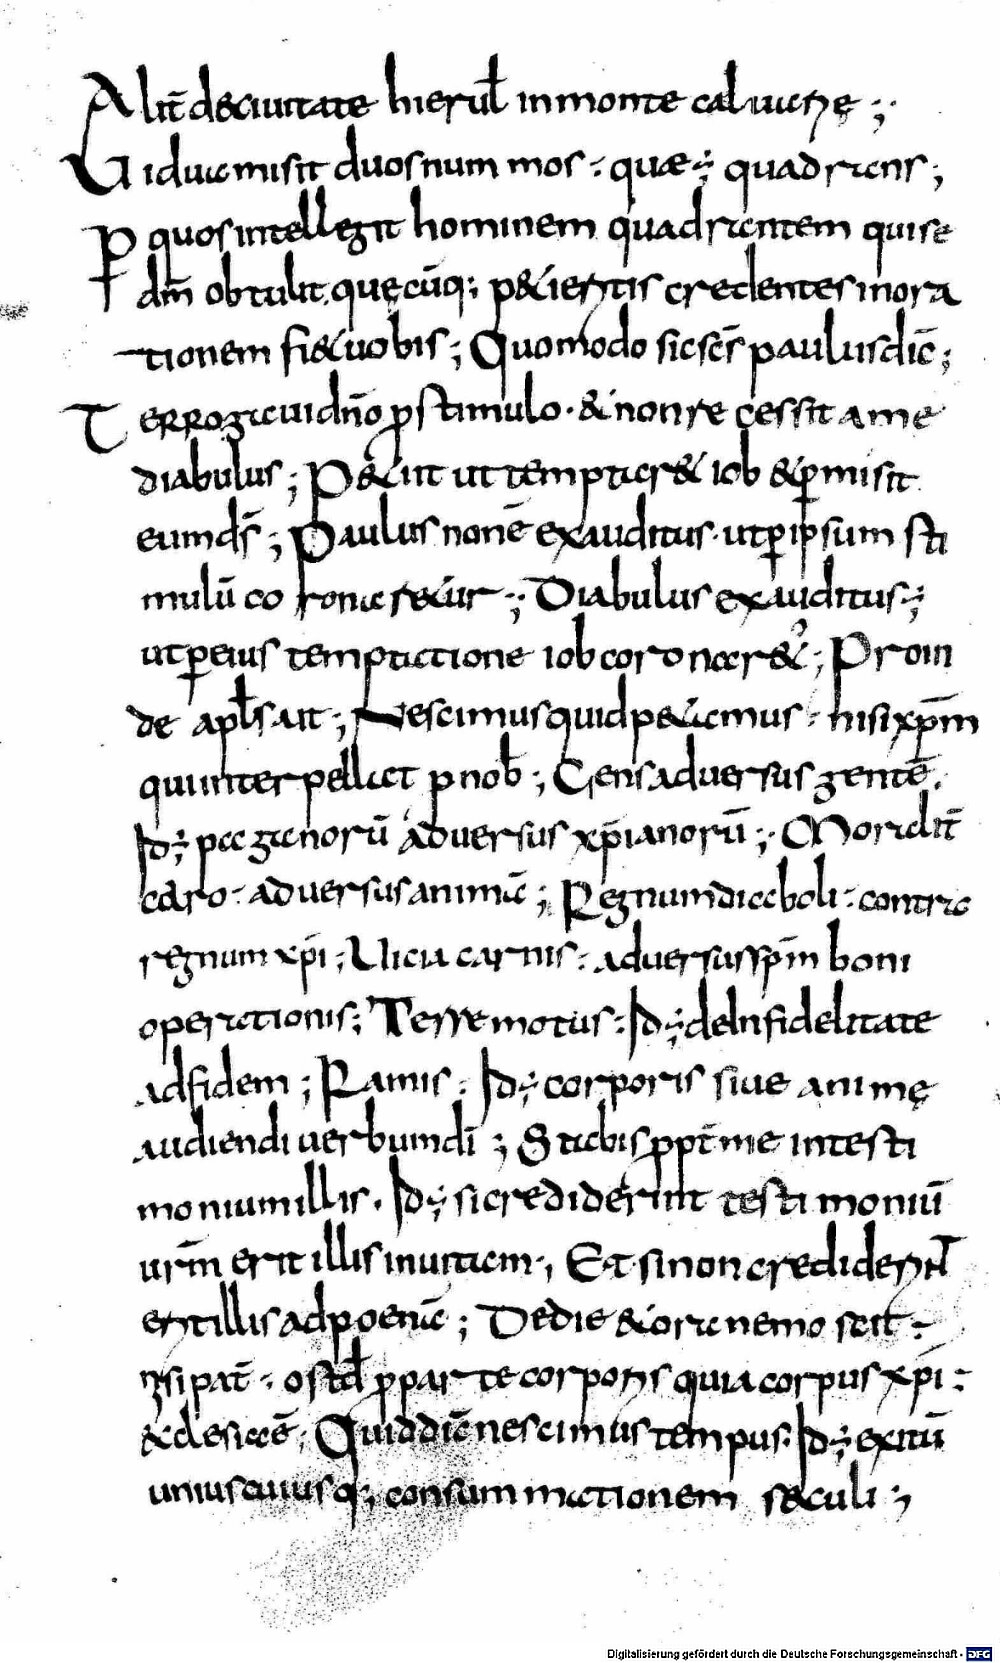 Alit̄ de ciuitate hierul̄ in monte caluarię ;
Uidua misit duos num mos · quae ÷ quadrans ;
P quos intellegit hominem quadrientem qui se
dm̄ obtulit. quęcūq; petieritis credentes in ora
tionem fiet uobis ; Quomodo sic sc̄s paulus dic̄ ;
Ter rogaui dn̄o p stimulo · & non re cessit a me
diabulus ; Petiit ut temptar& iob & pmisit
eum ds̄ ; Paulus non ē exauditus · ut p ipsum sti
mulū co ronaretur ; Diabulus exauditus ;
ut p eius temptatione iob coronar& ; Proin
de apl̄s ait ; Nescimus quid petamus · nisi xpm̄
qui interpellat p nob̄ ; Gens aduersus gentē.
Id ÷ paganorū aduersus xp̄ianorū ; Mor id it̄
caro · aduersus animā ; Regnum diaboli · contra
regnum xpi ; Uicia carnis · aduersus spm̄ boni
operationis ; Terre motus · Id ÷ de infidelitate
ad fidem ; Ramis · Id ÷ corporis siue animę
audiendi uerbum dī ; Stabis ppt̄ me in testi
monium illis. Id ÷ si crediderint testimoniū
urm̄ erit illis in uitam ; Et si non crediderint
erit illis ad poenā ; De die & ora nemo scit ·
nisi pat̄ · ostd̄ p parte corporis quia corpus xpi ·
ecclesia ē ; Quid dic̄ nescimus tempus · Id ÷ exitū
uniuscuiusq; consummationem sęculi ;
Digitalisierung gefördert durch die Deutsche Forschungsgemeinschaft - DFG